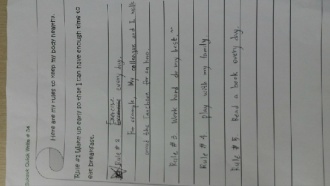 Here are my rules to keep my body healthy.
Rule #1 Wake up early so that I can have enough time to
eat breakfast.
Rule # 2 Exercise every day.
For example, My colleague and I walk
around the for an hour
Rule # 3 Work hard, do my best~
Rule # 4 play with my family
Rule # 5 Read a book every day.